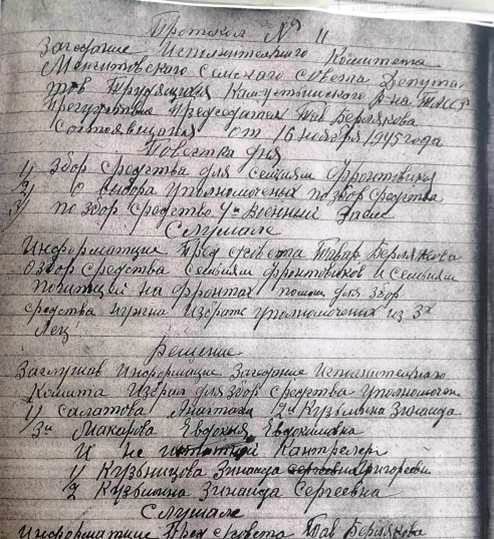 Протокол № 11
Заседание Исполнительного Комитета
сельского совета Депута-
тов Трудящихся р-на ТАССР
Председателя Тов Бермякова
от 16 ноября 1945 года
Повестка дня
1) Збор средства для семиям Фронтовика
2) О выбора уполномоченых по збор средства
3) по збор средство 4й Военный Заем
Слушали
Информатция Пред совета Товар Бермякова
О збор средства семиям фронтовиков и семиям
на фронтах помощ для збор
средства нужна избрать уполномоченых из 3х
Лец
Решение
Заслушав Информацие Заседание Исполнительного
Комита Избрал для збор средства уполномочен
1) Салатова 2и Кузьмина Зинаида
3и Макарова Евдокия Евдокимовна
И не
1) Кузьницова Зинаида Григорьевн
2 Кузьмина Зинаида Сергеевна
Слушали
Информатцие Пред совета Тов Бермякова